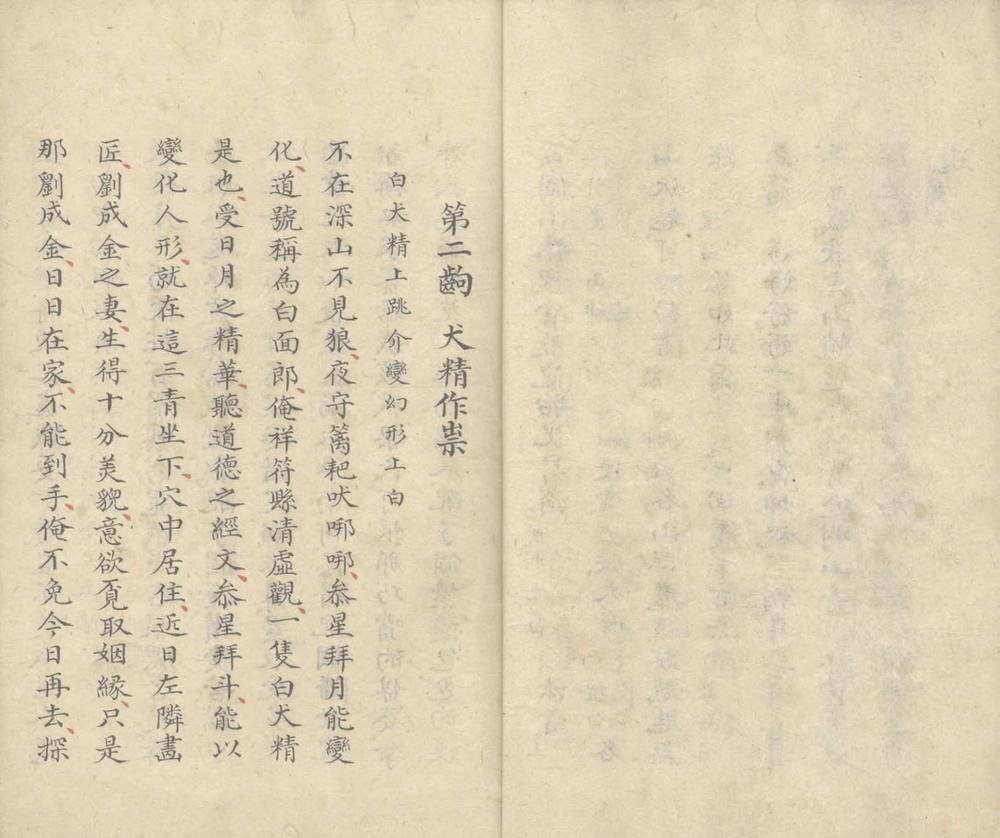 第二齣 犬精作祟
白犬精上跳介變幻形上白
不在深山不見狼、夜守篱耙吠哪哪、叅星拜月能變
化、道號稱為白面郎、俺祥符縣清虛觀、一隻白犬精
是也、受日月之精華、聽道德之經文、叅星拜斗、能以
變化人形、就在這三青坐下、穴中居住、近日左隣畵
匠、劉成金之妻、生得十分美貌、意欲覔取姻緣、只是
那劉成金、日日在家、不能到手、俺不免今日再去、探